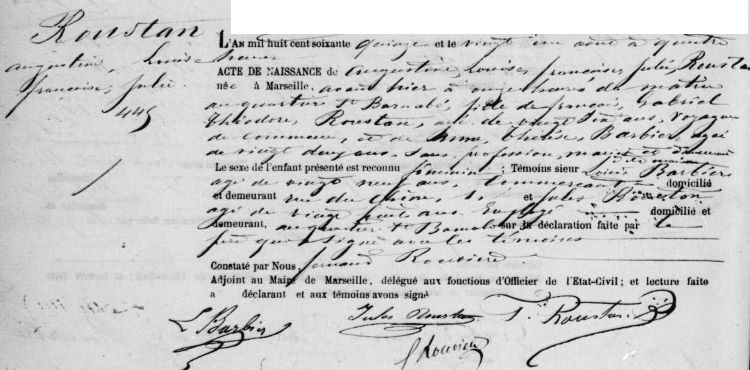 Roustan
augustine, Louise
françoise, julie.
445
L'AN mil huit cent soixante quinze et le vingt un aout à quatre
heures
ACTE DE NAISSANCE de augustine, Louise, françoise, julie, Roustan
née à Marseille, avant hier à onze heures du matin
au quartier St Barnabé, fille de françois, Gabriel
théodore, Roustan, agé de vingt six ans, voyageur
de commerce, et de thérèse, Barbier, agée
de vingt deux ans, sans profession, mariés et demeurant
Le sexe de l'enfant présenté est reconnu féminin : Témoins sieur Louis Barbier
agé de vingt neuf ans, commerçant domicilié
et demeurant rue et jules Roustan
agé de ans Employé domicilié et
demeurant, au quartier St Barnabé sur la déclaration faite par le
père qui a signé avec les témoins
Constaté par Nous, fernand Rouvière
Adjoint au Maire de Marseille, délégué aux fonctions d'Officier de l'Etat-Civil ; et lecture faite
a déclarant et aux témoins avons signé
L Barbier Jules Roustan T. Roustan
f Rouvière